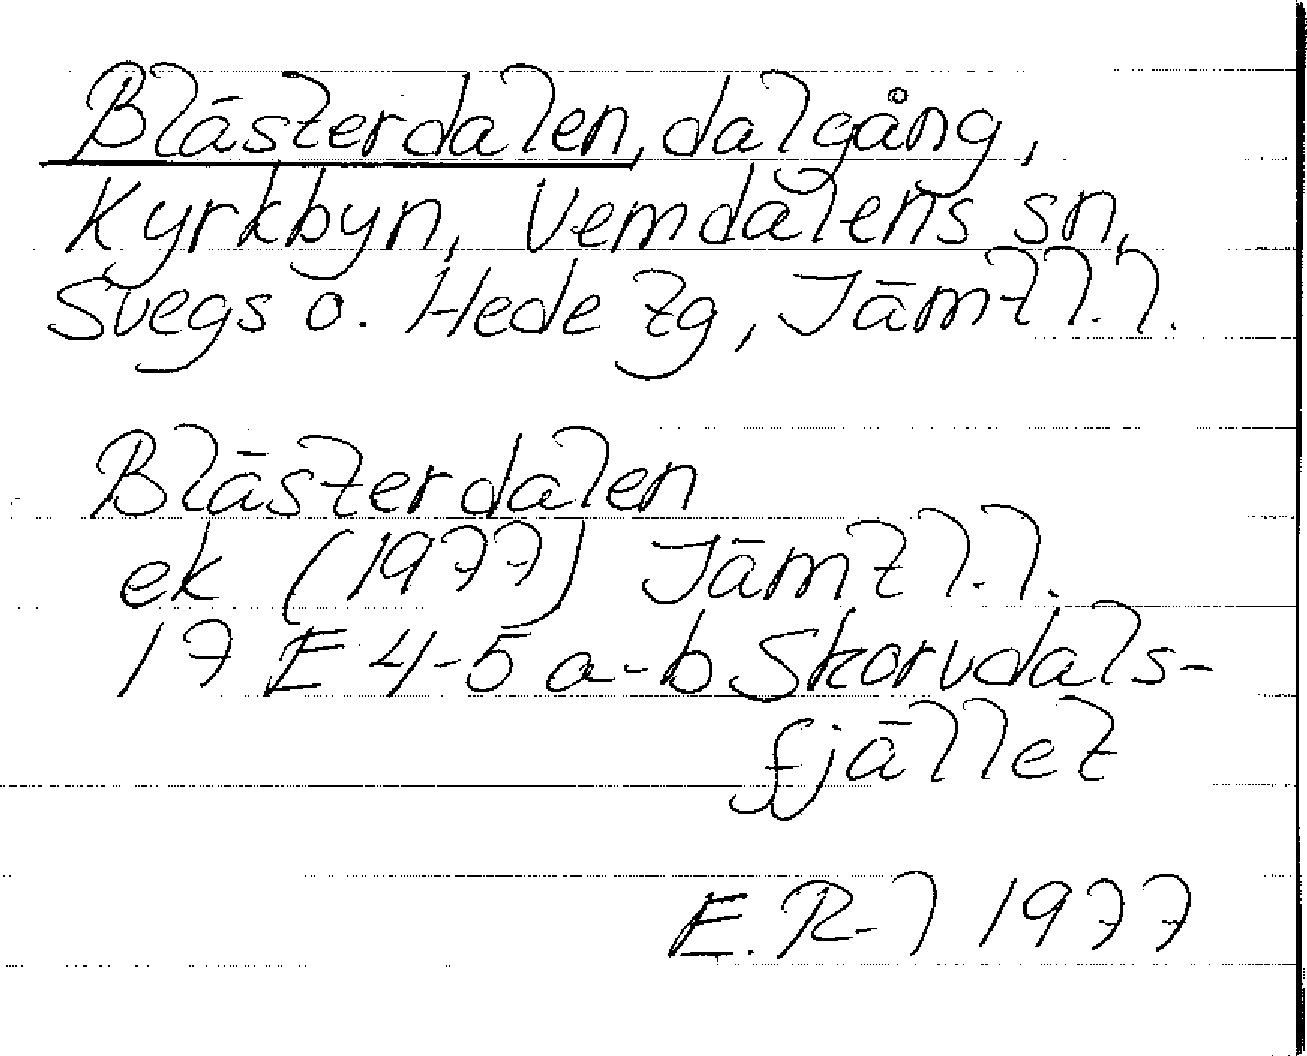 Blästerdalen, dalgång,
Kyrkbyn, Vemdalens sn,
Svegs o. Hede tg, Jämtl.l.
Blästerdalen
ek (1977) Jämtl.l.
17 E 4-5 a-b Skorvdals-
fjället
E.R-l 1977